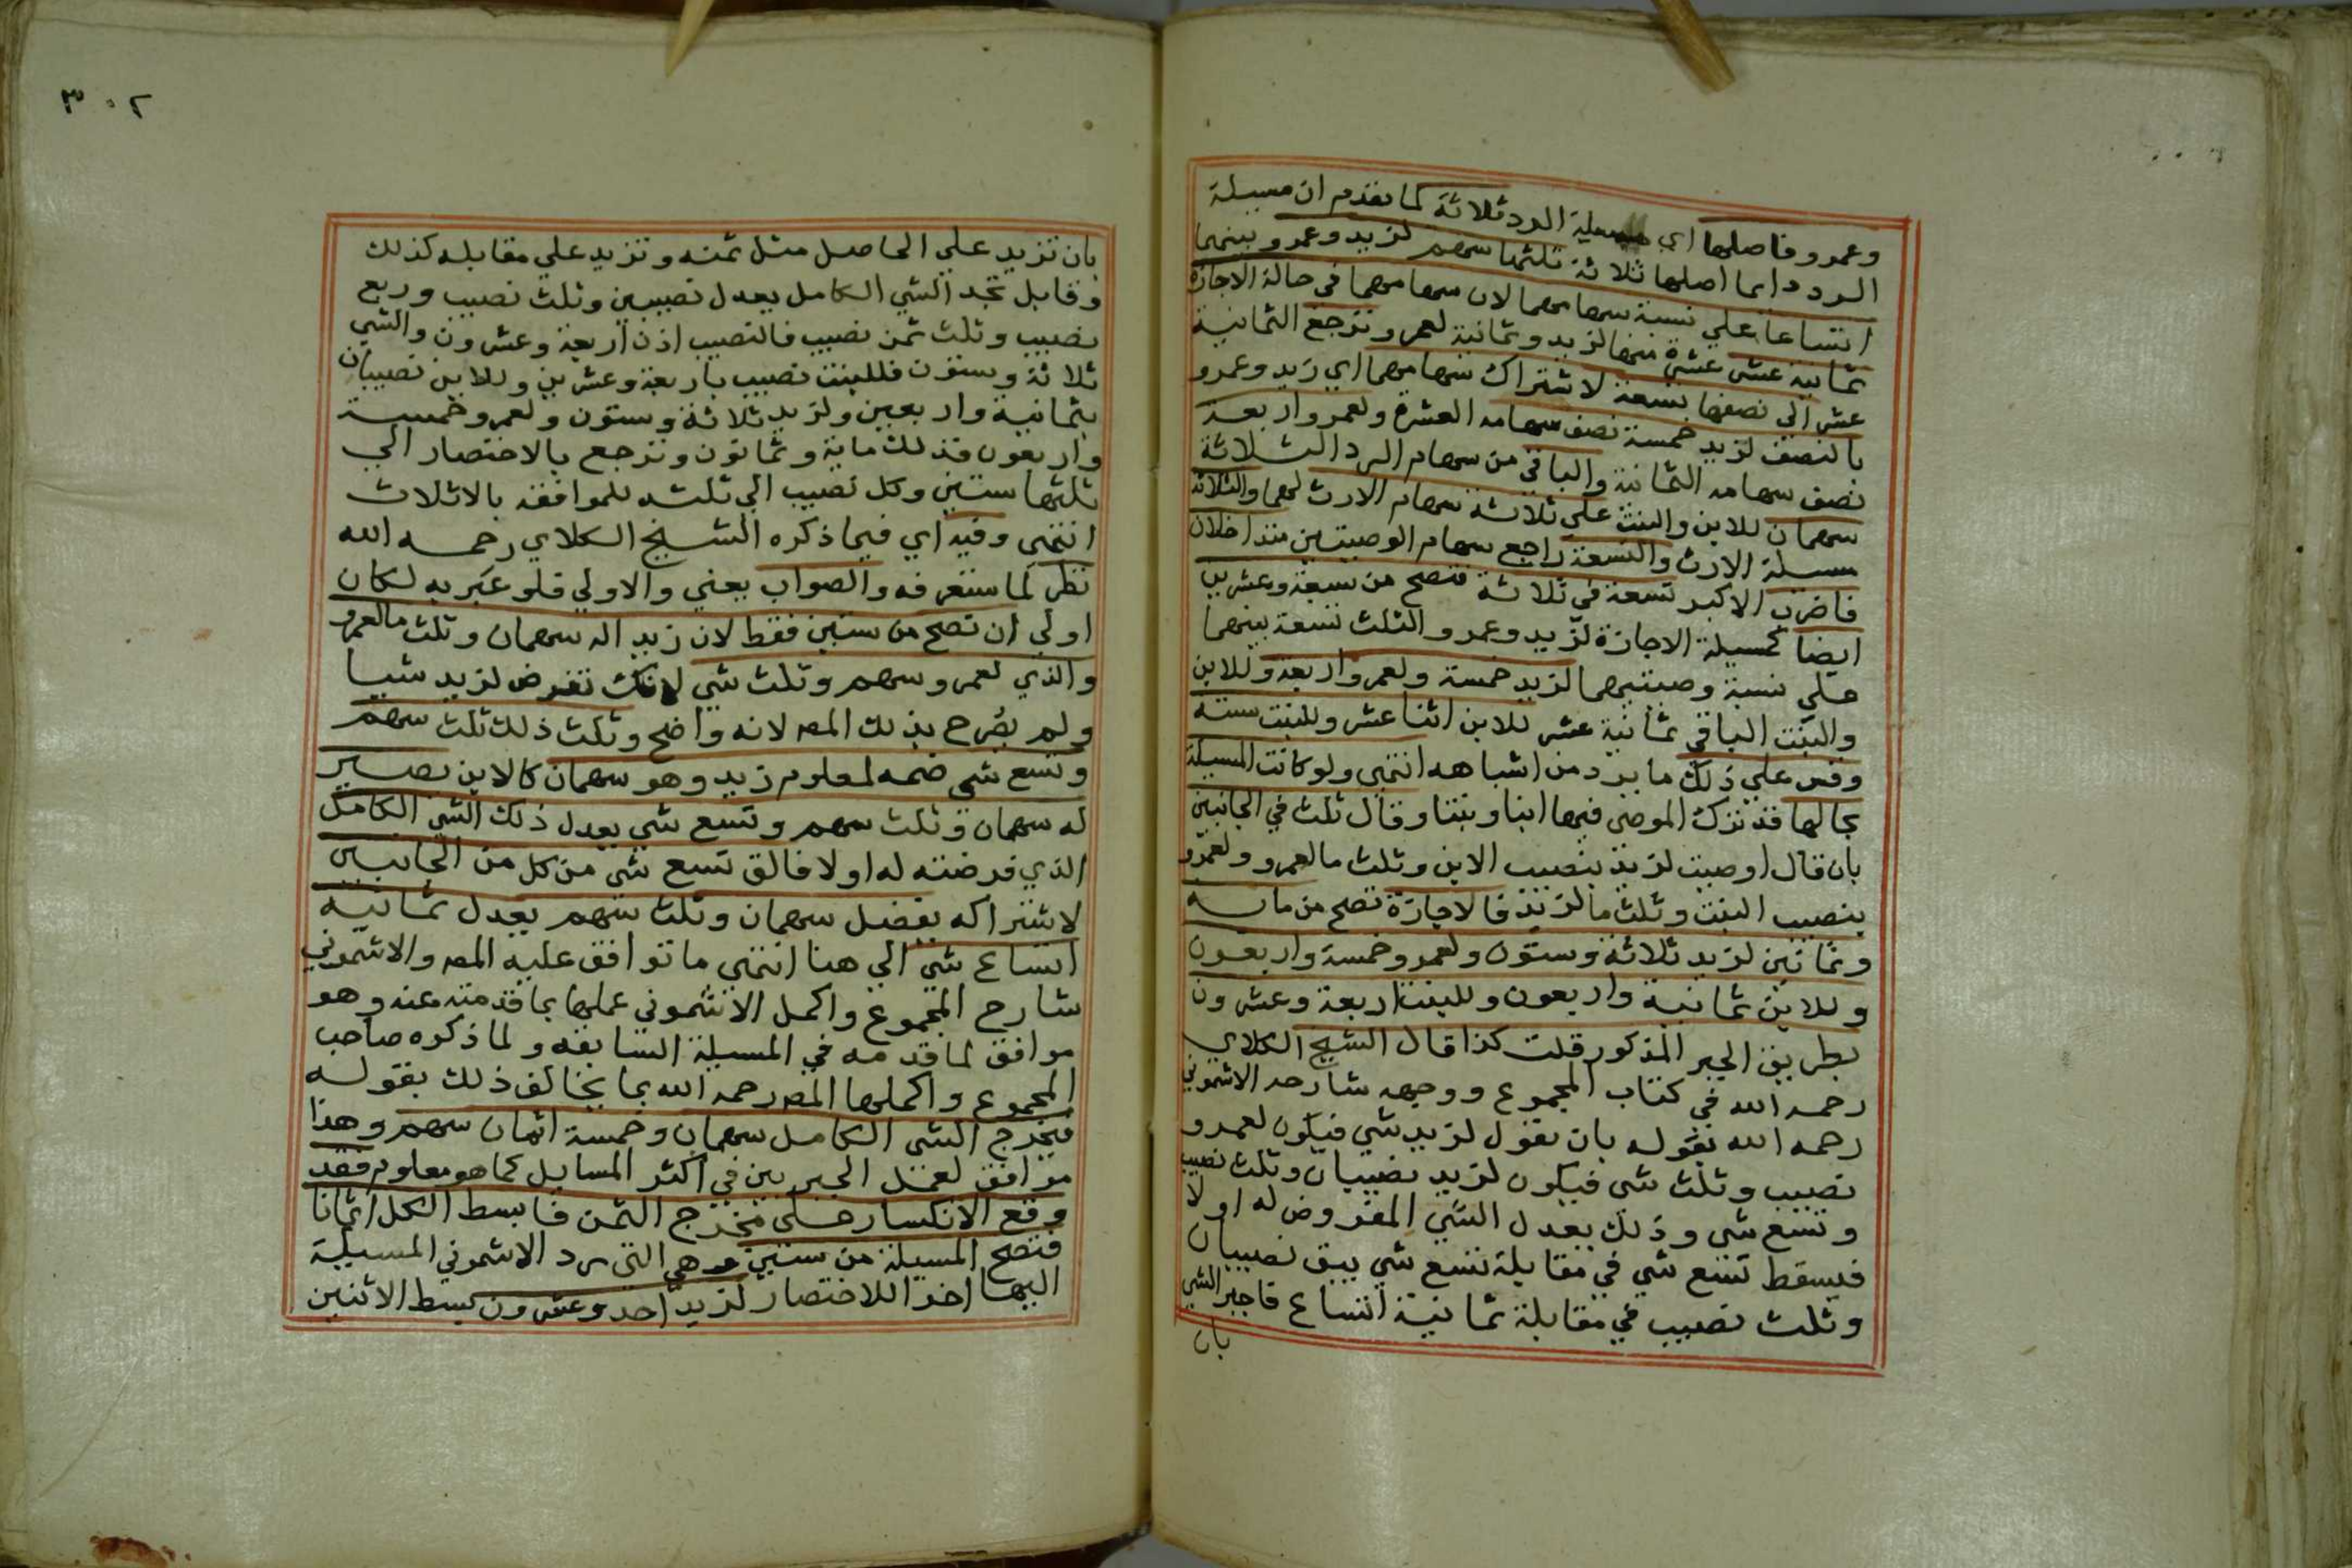 وعمرو فاصلها اي مسيلة الرد ثلاثة لما تقدم ان مسيلة
الرد دايما اصلها ثلاثة ثلثها سهم لزيد وعمرو بينهما
اتساعا علي نسبة سهامهما لان سهامهما في حالة الاجازة
ثمانية عشر عشرة منها لزيد وثمانية لعمرو وترجع الثمانية
عشر الي نصفها تسعة لاشتراك سهامهما اي زيد وعمرو
بالنصف لزيد خمسة نصف سهامه العشرة ولعمرو اربعة
نصف سهامه الثمانية والباقي من سهام الرد الثلاثة
سهمان للابن والبنت علي ثلاثة سهام الارث لهما والثلاثة
مسيلة الارث والتسعة راجع سهام الوصيتين متداخلان
فاضرب الاكبر تسعة في ثلاثة فتصح من سبعة وعشرين
ايضا كمسيلة الاجازة لزيد وعمرو الثلث تسعة بينهما
علي نسبة وصيتيهما لزيد خمسة ولعمرو اربعة وللابن
والبنت الباقي ثمانية عشر للابن اثنا عشر وللبنت ستة
وقس علي ذلك ما يرد من اشباهه انتهي ولو كانت المسيلة
بحالها فترك الموصي فيها ابنا وبنتا وقال ثلث في الجانبين
بان قال اوصيت لزيد بنصيب الابن وثلث ما لعمرو ولعمرو
بنصيب البنت وثلث ما لزيد فالاجازة تصح من ماية
وثمانين لزيد ثلاثة وستون ولعمرو خمسة واربعون
وللابن ثمانية واربعون وللبنت اربعة وعشرون
بطريق الجبر المذكور قلت كذا قال الشيخ الكلاي
رحمه الله في كتاب المجموع ووجهه شارحه الاشموني
رحمه الله بقوله بان تقول لزيد شي فيكون لعمرو
نصيب وثلث شي فيكون لزيد نصيبان وثلث نصيب
وتسع شي وذلك يعدل الشي المفروض له اولا
فيسقط تسع شي في مقابلة تسع شي يبقي نصيبان
وثلث نصيب في مقابلة ثمانية اتساع فاجبر الشي
بان
٣٠٢
بان تزيد علي الحاصل مثل ثمنه وتزيد علي مقابله كذلك
وقابل تجد الشي الكامل يعدل نصيبين وثلث نصيب وربع
نصيب وثلث ثمن نصيب فالنصيب اذن اربعة وعشرون والشي
ثلاثة وستون فللبنت نصيب باربعة وعشرين وللابن نصيبان
بثمانية واربعين ولزيد ثلاثة وستون ولعمرو خمسة
واربعون فذلك ماية وثمانون وترجع بالاختصار الي
ثلثها ستين وكل نصيب الي ثلثه للموافقة بالاثلاث
انتهي وفيه اي فيما ذكره الشيخ الكلاي رحمه الله
نظر لما ستعرفه والصواب يعني والاولي فلو عبر به لكان
اولي ان تصح من ستين فقط لان زيد اله سهمان وثلث ما لعمرو
والذي لعمرو سهم وثلث شي لانك تفرض لزيد شيا
ولم يصرح بذلك المصـ لانه واضح وثلث ذلك ثلث سهم
وتسع شي ضمه لمعلوم زيد وهو سهمان كالابن يصير
له سهمان وثلث سهم وتسع شي يعدل ذلك الشي الكامل
الذي فرضته له اولا فالق تسع شي من كل من الجانبين
لاشتراكه يفضل سهمان وثلث سهم يعدل ثمانية
اتساع شي الي هنا انتهي ما توافق عليه المصـ والاشموني
شارح المجموع واكمل الاشموني عملها بما قدمته عنه وهو
موافق لما قدمه في المسيلة السابقة ولما ذكره صاحب
المجموع واكملها المصـ رحمه الله بما يخالف ذلك بقوله
فيخرج الشي الكامل سهمان وخمسة اثمان سهم وهذا
موافق لعمل الجبريين في اكثر المسايل كما هو معلوم فقد
وقع الانكسار علي مخرج الثمن فابسط الكل اثمانا
فتصح المسيلة من ستين وهي التي رد الاشموني المسيلة
اليها اخرا للاختصار لزيد احد وعشرون بسط الاثنين